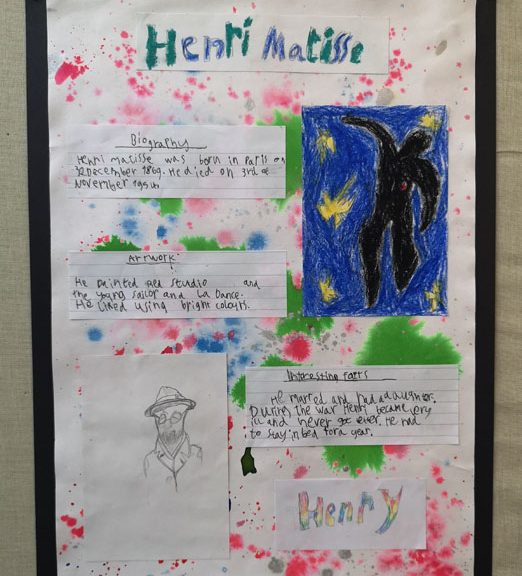 Henri Matisse
Biography
Henri Matisse was born in Paris on
December 1869. He died on 3rd of
November 1954
Artwork
He Painted Red Studio and
the young sailor and La Dance.
He liked using bright colours.
Interesting Facts
He married and had a daughter.
During the war Henri became very
ill and never got He had
to stay in bed for a year.
Henry